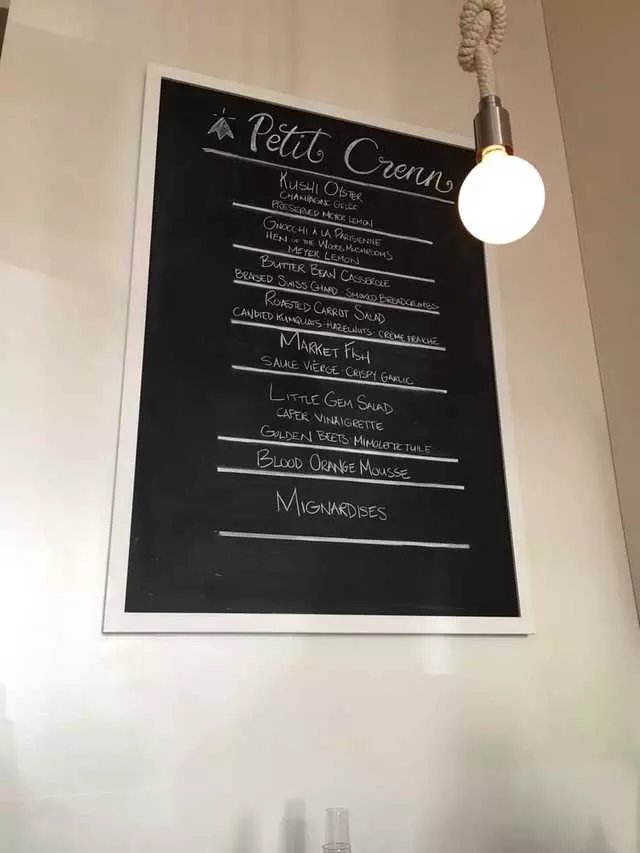 Petit Crenn
KUSHI OYSTER
CHAMPAGNE GELÉE
PRESERVED MEYER LEMON
GNOCCHI À LA PARISIENNE
HEN OF THE WOODS MUSHROOMS
MEYER LEMON
BUTTER BEAN CASSEROLE
BRAISED SWISS CHARD · SMOKED BREADCRUMBS
ROASTED CARROT SALAD
CANDIED KUMQUATS · HAZELNUTS · CRÈME FRAÎCHE
MARKET FISH
SAUCE VIÈRGE · CRISPY GARLIC
LITTLE GEM SALAD
CAPER VINAIGRETTE
GOLDEN BEETS · MIMOLETTE TUILE
BLOOD ORANGE MOUSSE
MIGNARDISES